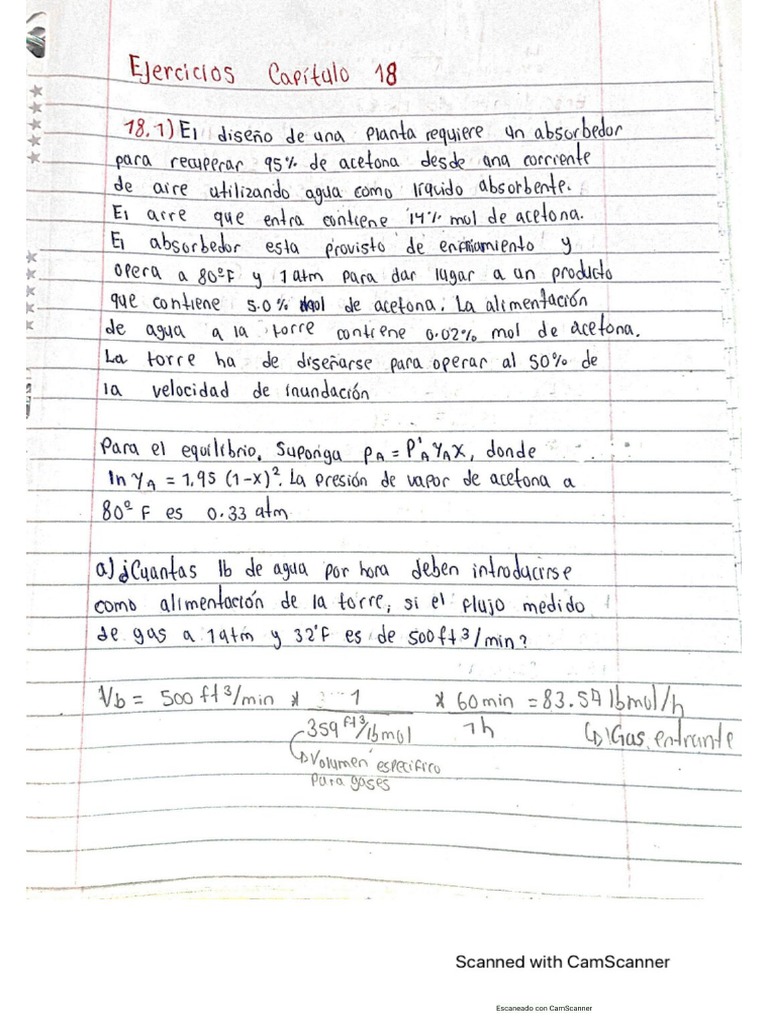 Ejercicios Capítulo 18
18.1) El diseño de una planta requiere un absorbedor
para recuperar 95% de acetona desde una corriente
de aire utilizando agua como líquido absorbente.
El aire que entra contiene 14% mol de acetona.
El absorbedor esta provisto de enfriamiento y
opera a 80°F y 1 atm para dar lugar a un producto
que contiene 5.0% mol de acetona. La alimentación
de agua a la torre contiene 0.02% mol de acetona.
La torre ha de diseñarse para operar al 50% de
la velocidad de inundación
Para el equilibrio. Suponga pA = P'A γA X, donde
ln γA = 1.95 (1-x)². La presión de vapor de acetona a
80° F es 0.33 atm
a) ¿Cuantas lb de agua por hora deben introducirse
como alimentación de la torre, si el flujo medido
de gas a 1 atm y 32°F es de 500 ft3/min?
Vb = 500 ft3/min * 1 * 60 min = 83.57 lbmol/h
359 ft3/lbmol 1h ↳ Gas entrante
↳ Volumen específico
para gases
Scanned with CamScanner
Escaneado con CamScanner